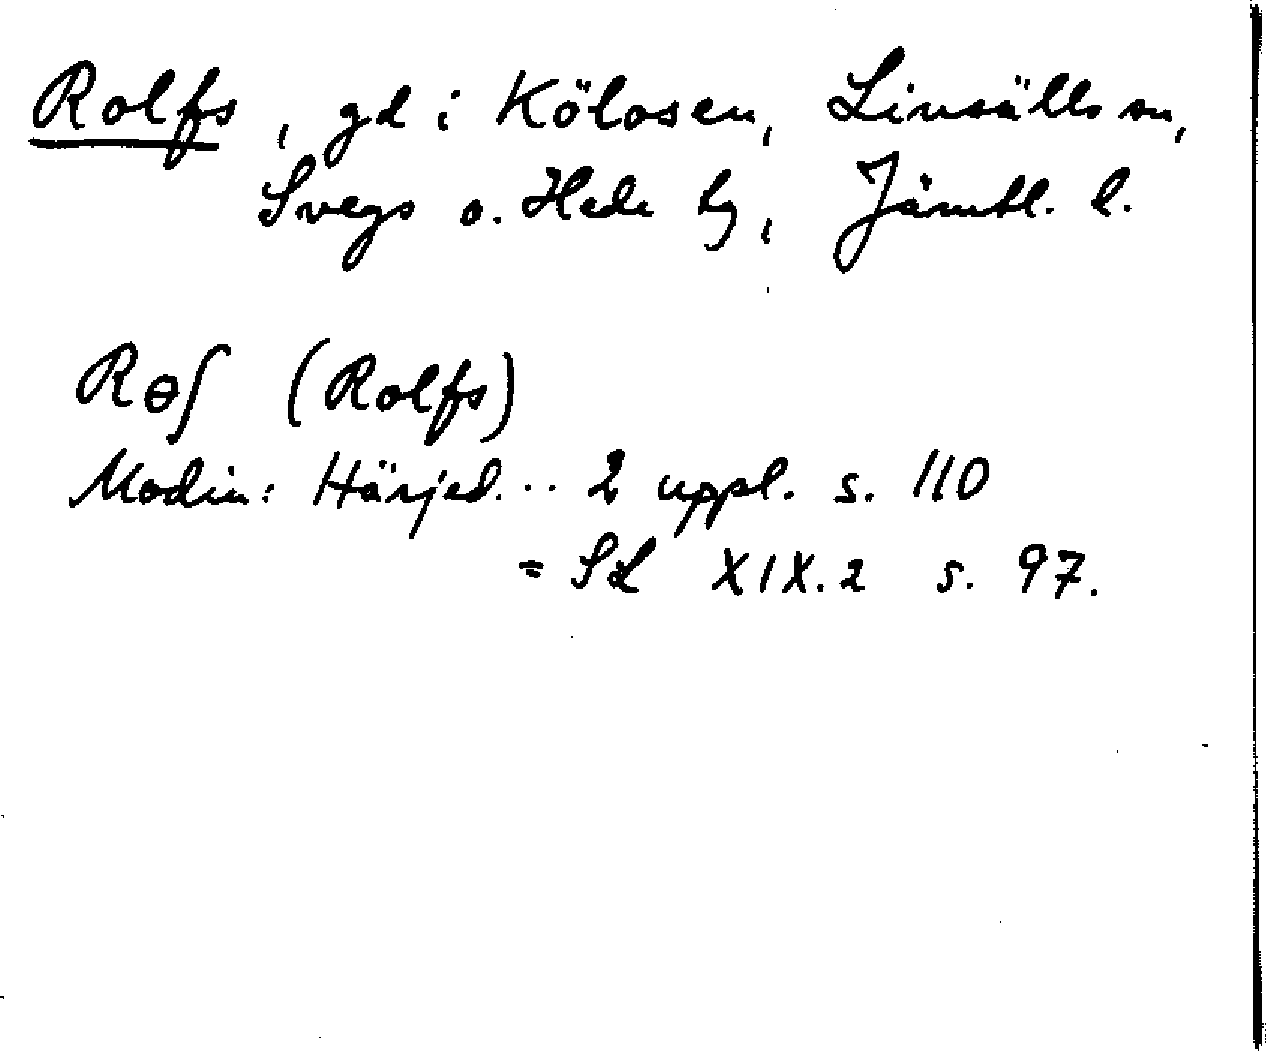 Rolfs, gd i Kölosen, Linsälls sn,
Svegs o. Hede tg, Jämtl. l.
Rɵʃ (Rolfs)
Modin: Härjed... 2 uppl. s. 110
= SL XIX.2 s. 97.